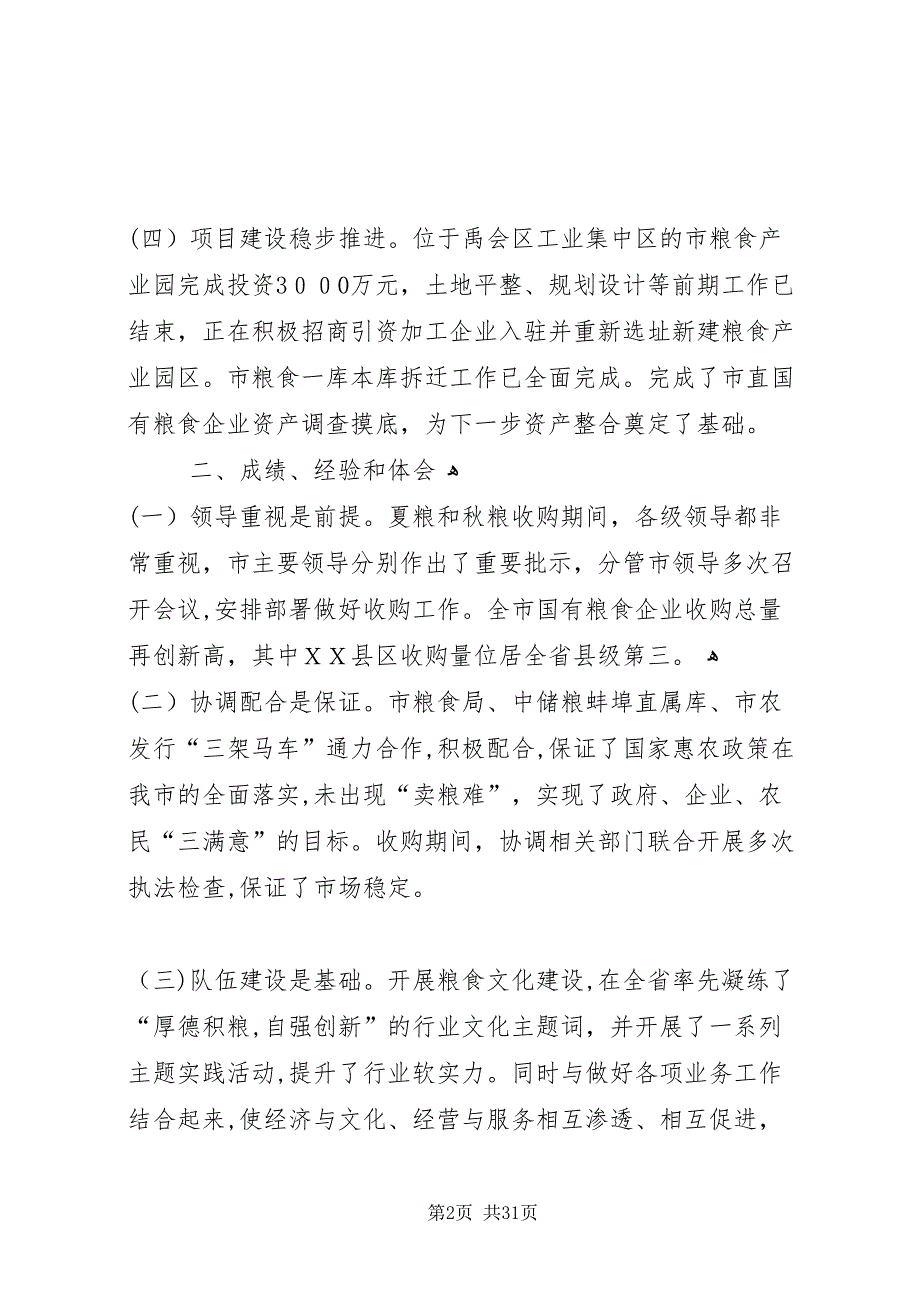 (四）项目建设稳步推进。位于禹会区工业集中区的市粮食产
业园完成投资3０00万元，土地平整、规划设计等前期工作已
结束，正在积极招商引资加工企业入驻并重新选址新建粮食产
业园区。市粮食一库本库拆迁工作已全面完成。完成了市直国
有粮食企业资产调查摸底，为下一步资产整合奠定了基础。
二、成绩、经验和体会 ﻬ
(一）领导重视是前提。夏粮和秋粮收购期间，各级领导都非
常重视，市主要领导分别作出了重要批示，分管市领导多次召
开会议,安排部署做好收购工作。全市国有粮食企业收购总量
再创新高，其中ＸＸ县区收购量位居全省县级第三。 ﻬ
(二）协调配合是保证。市粮食局、中储粮蚌埠直属库、市农
发行“三架马车”通力合作,积极配合,保证了国家惠农政策在
我市的全面落实,未出现“卖粮难”，实现了政府、企业、农
民“三满意”的目标。收购期间，协调相关部门联合开展多次
执法检查,保证了市场稳定。
（三)队伍建设是基础。开展粮食文化建设,在全省率先凝练了
“厚德积粮,自强创新”的行业文化主题词，并开展了一系列
主题实践活动,提升了行业软实力。同时与做好各项业务工作
结合起来,使经济与文化、经营与服务相互渗透、相互促进，
第2页 共31页